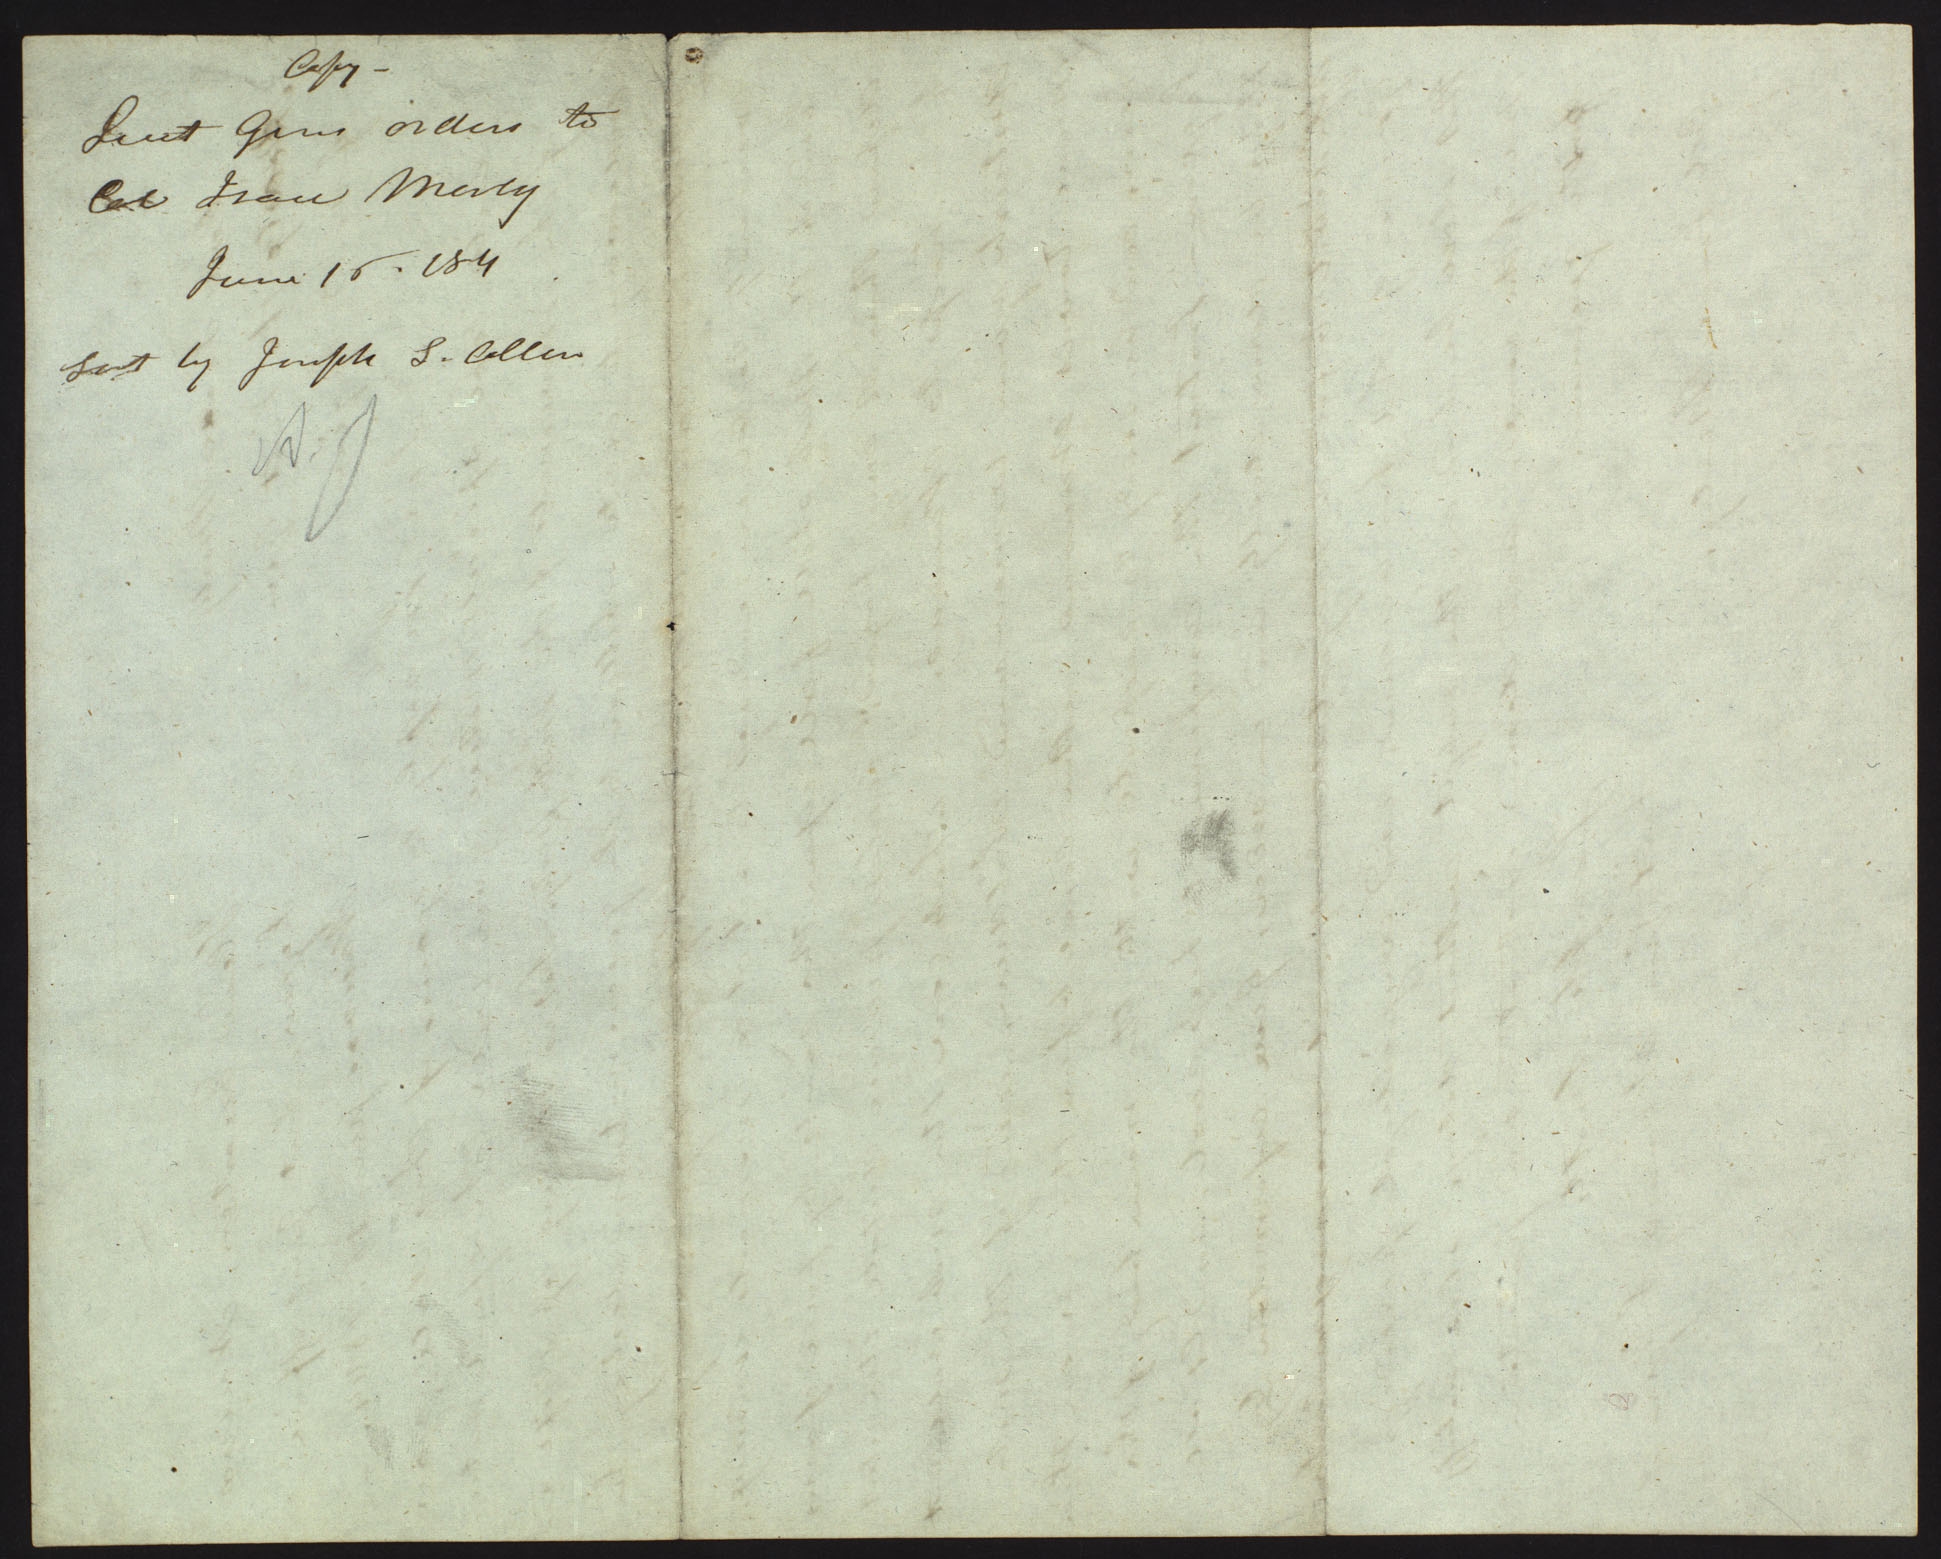 Copy -
Lieut Gens orders to
Col Isaac Morly
June 15. 184
Sent by Joseph S. Allen